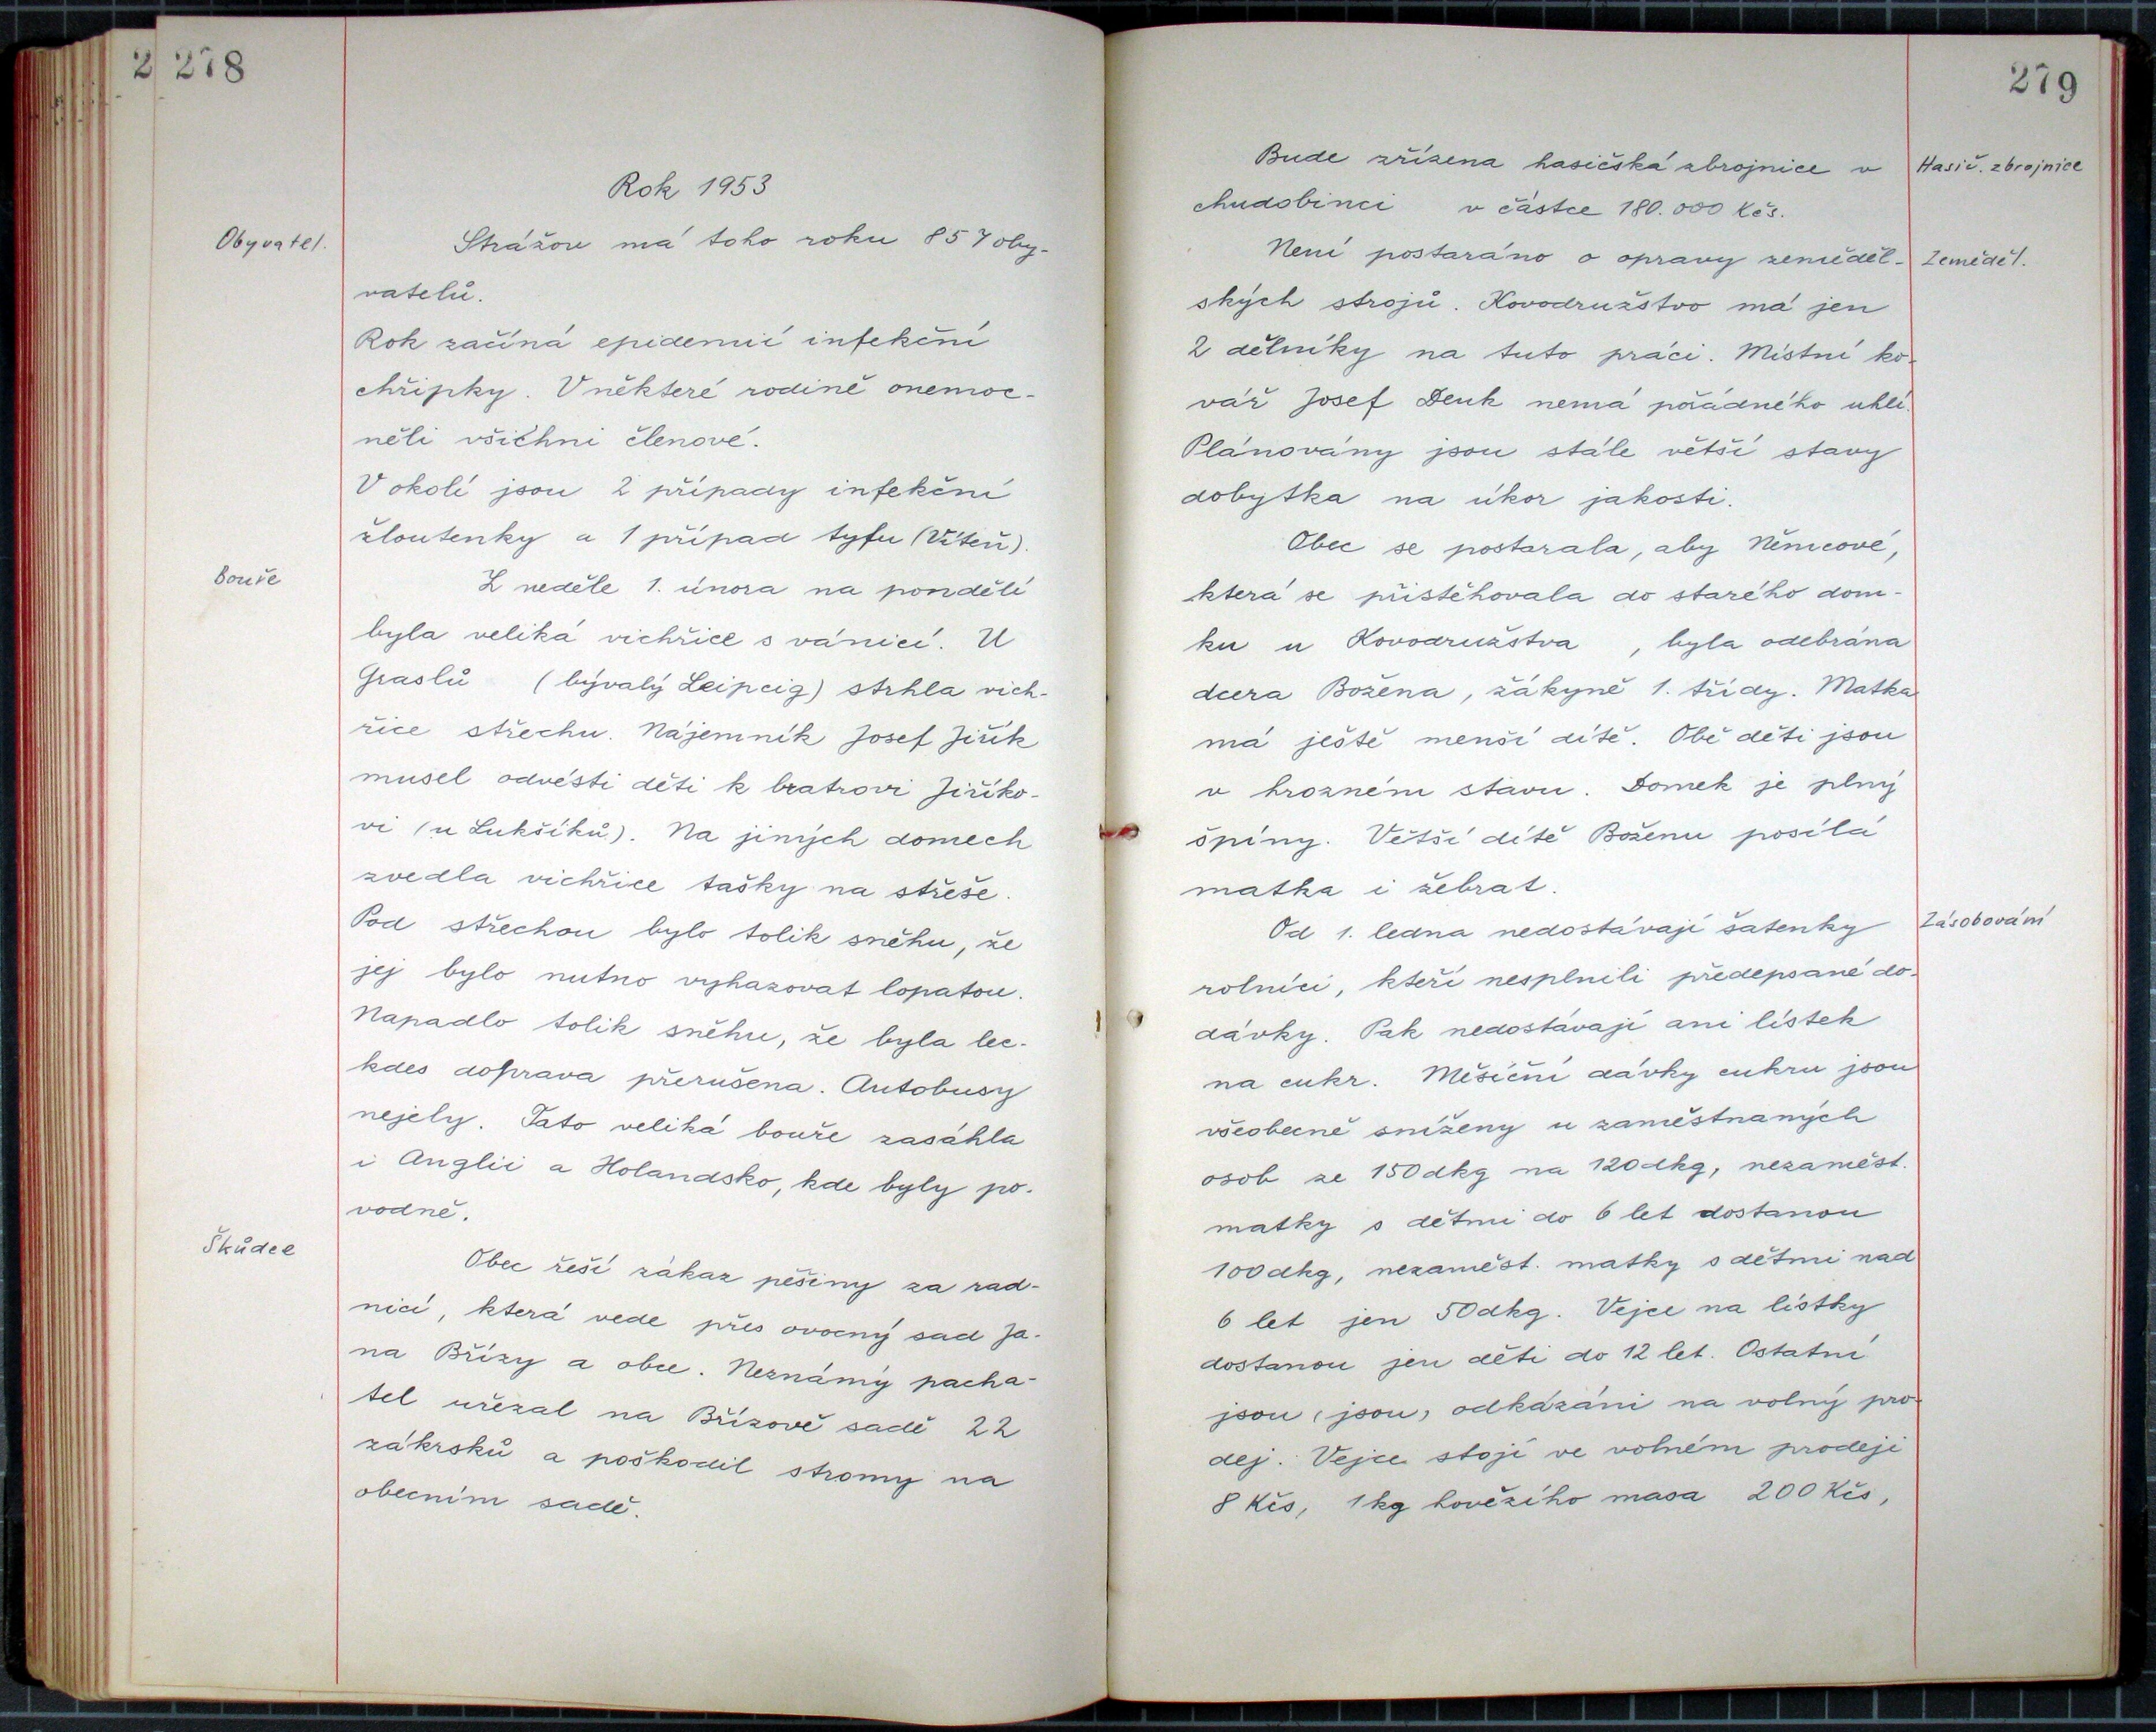 2 278
Rok 1953
Obyvatel.
Strážov má toho roku 857 oby-
vatelů.
Rok začíná epidemií infekční
chřipky. V některé rodině onemoc-
něli všichni členové.
V okolí jsou 2 případy infekční
žloutenky a 1 případ tyfu (Víteň).
Bouře
Z neděle 1. února na pondělí
byla veliká vichřice s vánicí. U
Graslů (bývalý Leipcig) strhla vich-
řice střechu. Nájemník Josef Jiřík
musel odvésti děti k bratrovi Jiříko-
vi (u Lukšíků). Na jiných domech
zvedla vichřice tašky na střeše.
Pod střechou bylo tolik sněhu, že
jej bylo nutno vyhazovat lopatou.
Napadlo tolik sněhu, že byla lec-
kdes doprava přerušena. Autobusy
nejely. Tato veliká bouře zasáhla
i Anglii a Holandsko, kde byly po-
vodně.
Škůdce
Obec řeší zákaz pěšiny za rad-
nicí, která vede přes ovocný sad Ja-
na Břízy a obce. Neznámý pacha-
tel uřezal na Břízově sadě 22
zákrsků a poškodil stromy na
obecním sadě.
279
Bude zřízena hasičská zbrojnice v
Hasič. zbrojnice
chudobinci v částce 180.000 Kčs.
Není postaráno o opravy zeměděl-
Zeměděl.
ských strojů. Kovodružstvo má jen
2 dělníky na tuto práci. Místní ko-
vář Josef Denk nemá pořádného uhlí.
Plánovány jsou stále větší stavy
dobytka na úkor jakosti.
Obec se postarala, aby Němcové,
která se přistěhovala do starého dom-
ku u Kovodružstva , byla odebrána
dcera Božena, žákyně 1. třídy. Matka
má ještě menší dítě. Obě děti jsou
v hrozném stavu. Domek je plný
špíny. Větší dítě Boženu posílá
matka i žebrat.
Od 1. ledna nedostávají šatenky
Zásobování
rolníci, kteří nesplnili předepsané do-
dávky. Pak nedostávají ani lístek
na cukr. Měsíční dávky cukru jsou
všeobecně sníženy u zaměstnaných
osob ze 150dkg na 120dkg, nezaměst.
matky s dětmi do 6 let dostanou
100dkg, nezaměst. matky s dětmi nad
6 let jen 50dkg. Vejce na lístky
dostanou jen děti do 12 let. Ostatní
jsou (jsou) odkázáni na volný pro-
dej. Vejce stojí ve volném prodeji
8 Kčs, 1kg hovězího masa 200 Kčs,